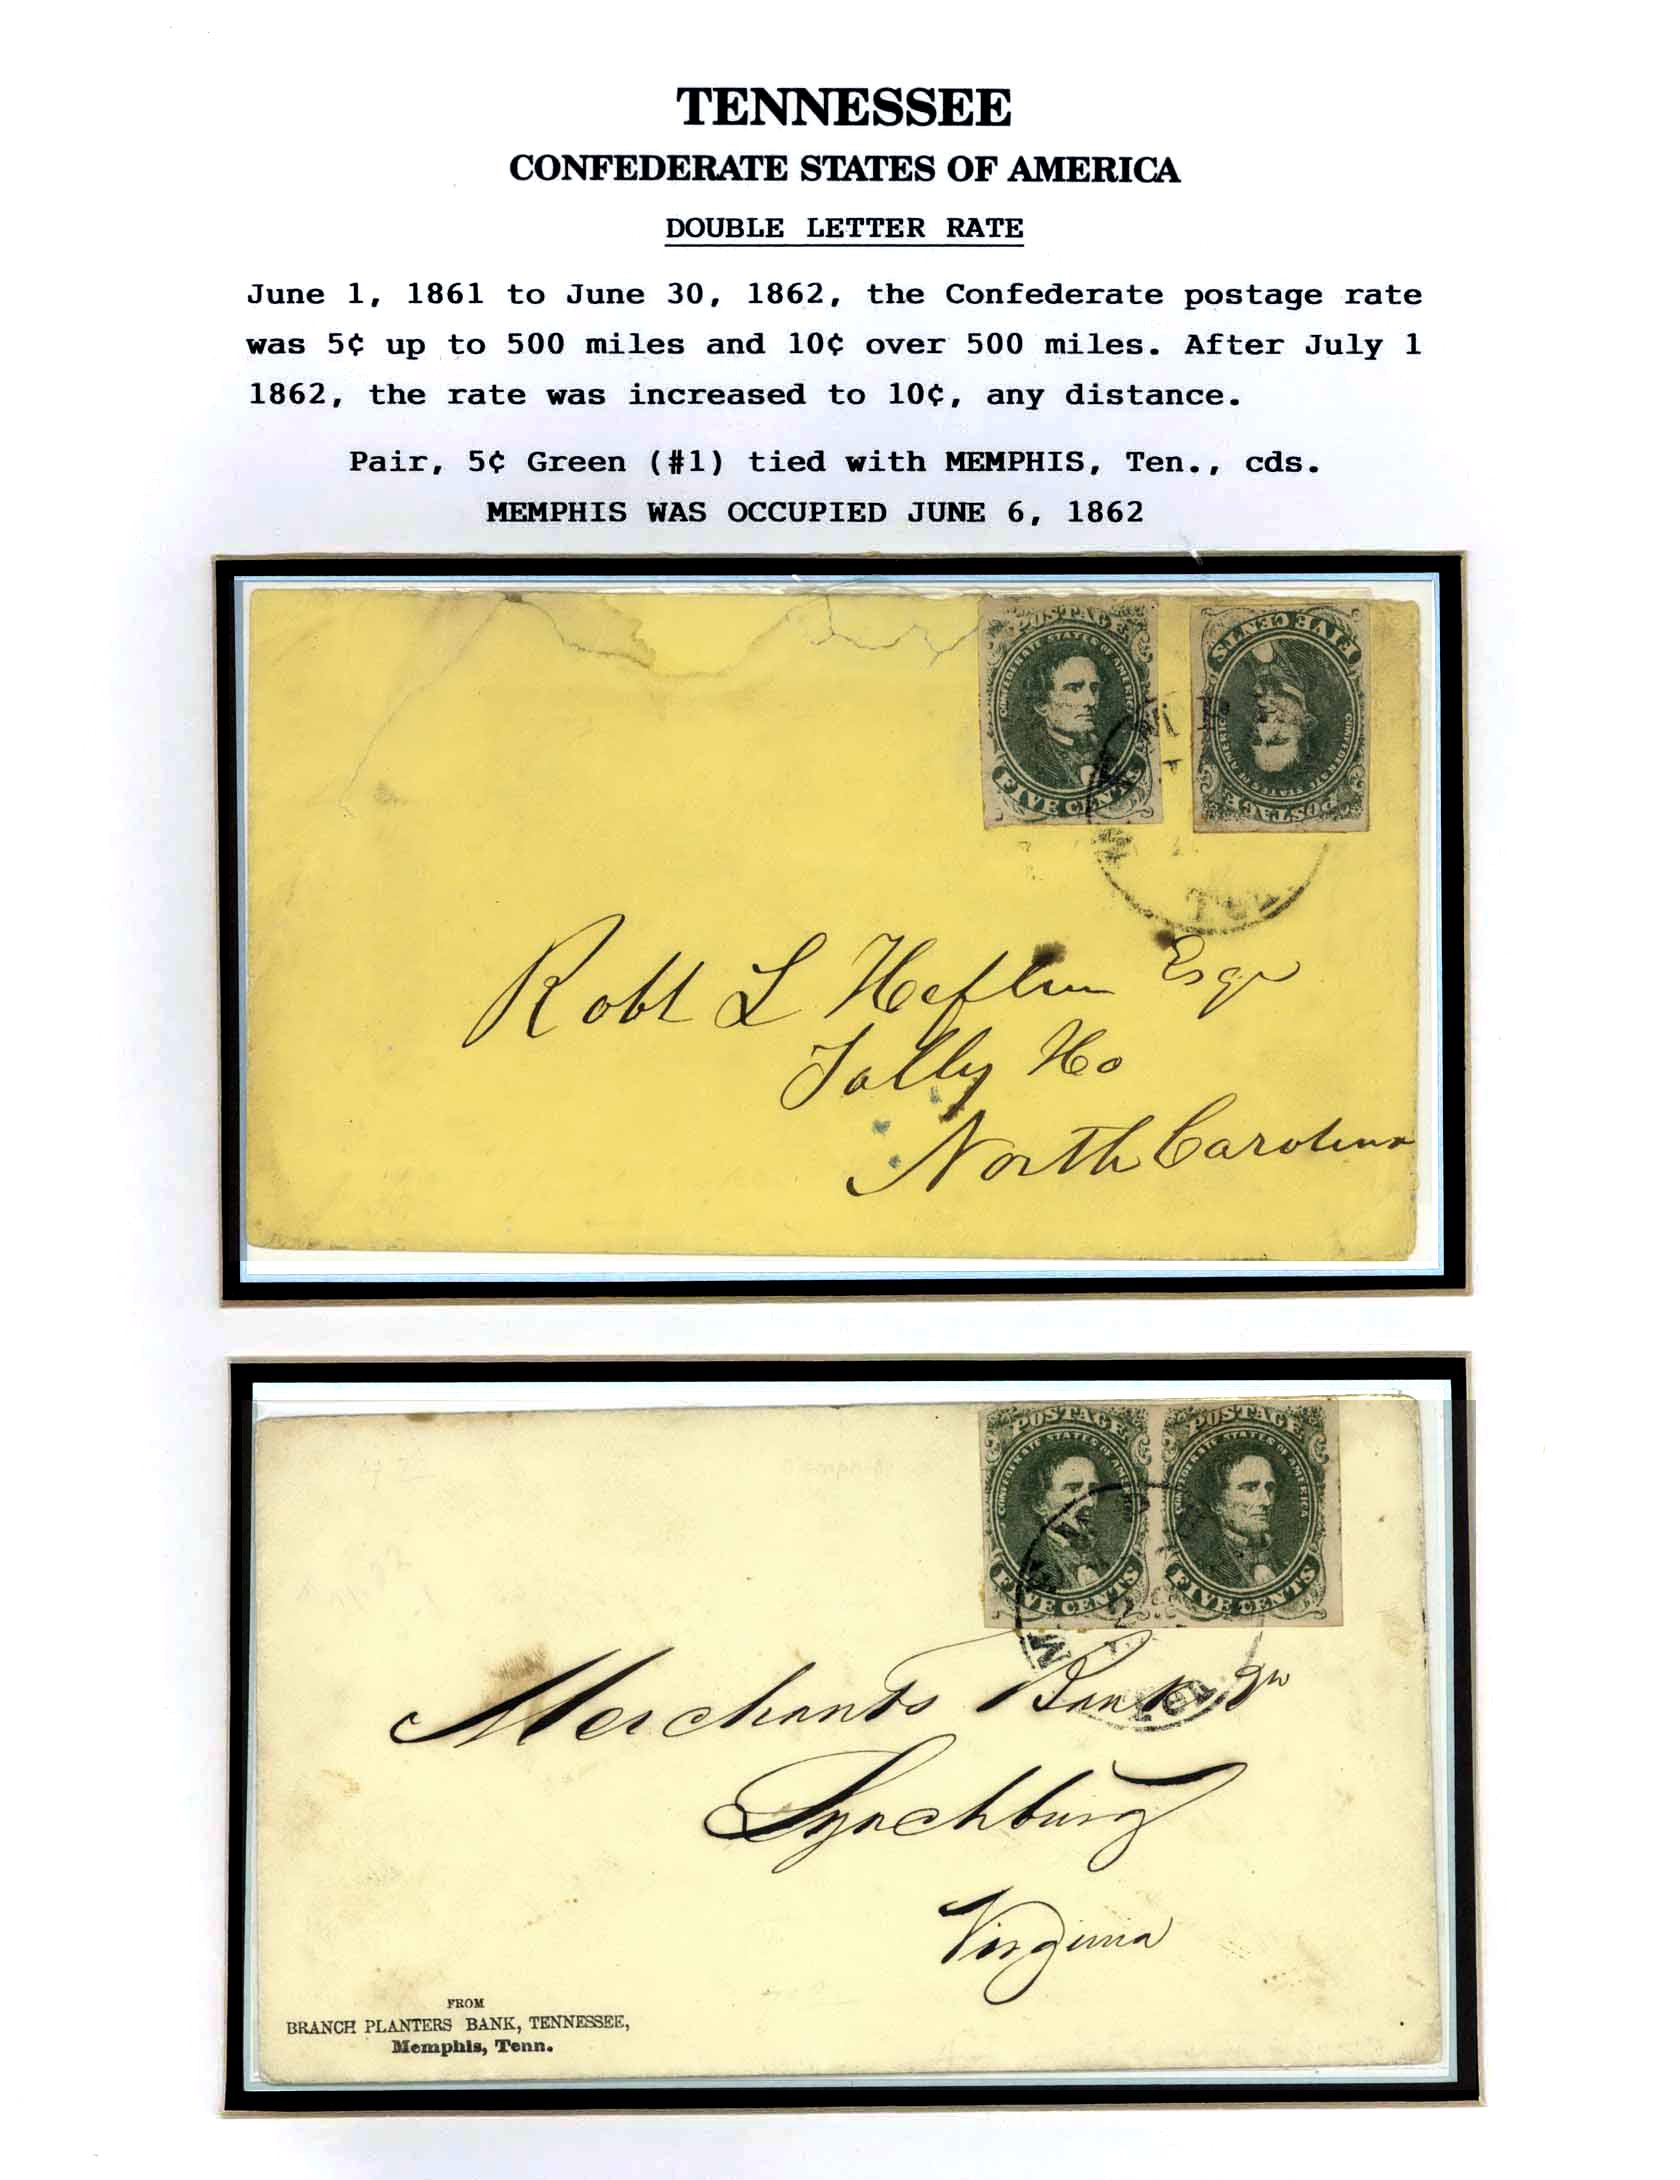 TENNESSEE
CONFEDERATE STATES OF AMERICA
DOUBLE LETTER RATE
June 1, 1861 to June 30, 1862, the Confederate postage rate
was 5¢ up to 500 miles and 10¢ over 500 miles. After July 1
1862, the rate was increased to 10¢, any distance.
Pair, 5¢ Green (#1) tied with MEMPHIS, Ten., cds.
MEMPHIS WAS OCCUPIED JUNE 6, 1862
POSTAGE
CONFEDERATE STATES OF AMERICA
FIVE CENTS
FIVE CENTS
CONFEDERATE STATES OF AMERICA
POSTAGE
Robt L Heflin Esqr
Tally Ho
North Carolina
POSTAGE
CONFEDERATE STATES OF AMERICA
FIVE CENTS
POSTAGE
CONFEDERATE STATES OF AMERICA
FIVE CENTS
Merchants Bank
Lynchburg
Virginia
FROM
BRANCH PLANTERS BANK, TENNESSEE,
Memphis, Tenn.